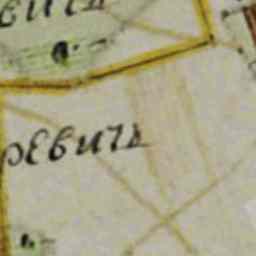 евичъ
ревичъ